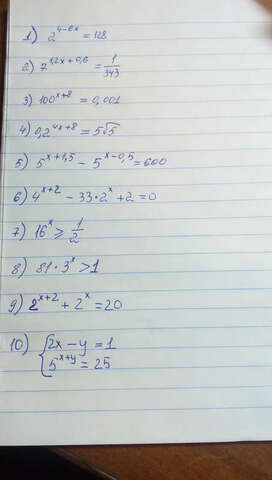 1) 2^(4-6x) = 128
2) 7^(1,2x + 0,6) = 1/343
3) 100^(x+8) = 0,001
4) 0,2^(4x+8) = 5√5
5) 5^(x+1,5) - 5^(x-0,5) = 600
6) 4^(x+2) - 33·2^x + 2 = 0
7) 16^x ⩾ 1/2
8) 81·3^x > 1
9) 2^(x+2) + 2^x = 20
10) { 2x - y = 1
5^(x+y) = 25